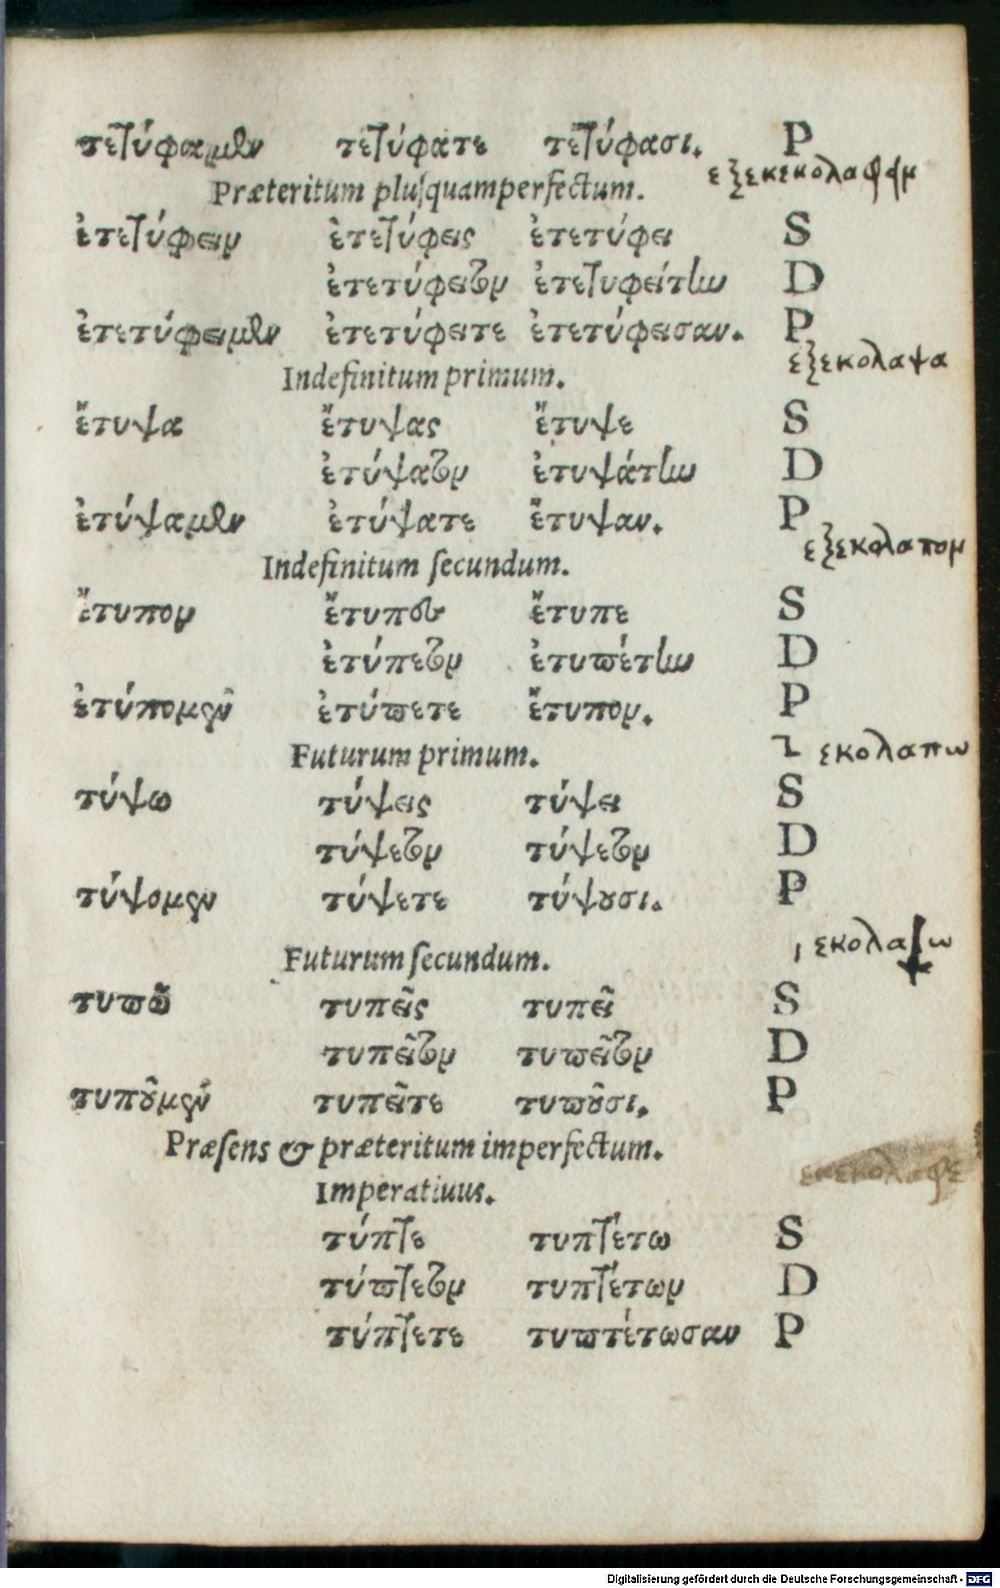 τετύφαμεν τετύφατε τετύφασι. P
εξεκεκολαφφμ
Præteritum pluſquamperfectum.
ἐτετύφειν ἐτετύφεις ἐτετύφει S
ἐτετύφειτον ἐτετυφείτην D
ἐτετύφειμεν ἐτετύφειτε ἐτετύφεισαν. P
εξεκολαψα
Indefinitum primum.
ἔτυψα ἔτυψας ἔτυψε S
ἐτύψατον ἐτυψάτην D
ἐτύψαμεν ἐτύψατε ἔτυψαν. P
εξεκολαπον
Indefinitum ſecundum.
ἔτυπον ἔτυπες ἔτυπε S
ἐτύπετον ἐτυπέτην D
ἐτύπομεν ἐτύπετε ἔτυπον. P
Futurum primum. εκολαπω
τύψω τύψεις τύψει S
τύψετον τύψετον D
τύψομεν τύψετε τύψουσι. P
Futurum ſecundum.
τυπῶ τυπεῖς τυπεῖ S
τυπεῖτον τυπεῖτον D
τυποῦμεν τυπεῖτε τυποῦσι. P
Præſens & præteritum imperfectum.
Imperatiuus.
τύπτε τυπτέτω S
τύπτετον τυπτέτων D
τύπτετε τυπτέτωσαν P
Digitalisierung gefördert durch die Deutsche Forschungsgemeinschaft - DFG